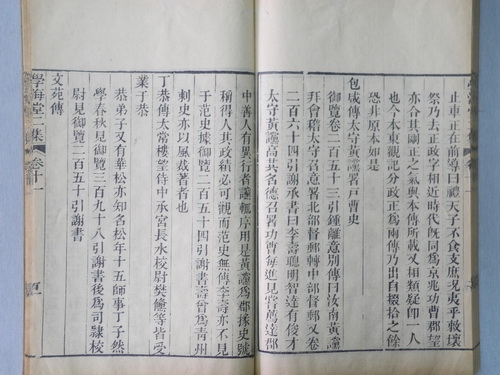 止車正在前導曰禮天子不食支庶況夷乎敕壞
祭乃去正政字相近時代既同爲京兆功曹郡望
亦合其剛正之氣與本傳所載又相類疑卽一人
也今本東觀記分政正爲兩傳乃出自掇拾之餘
恐非原本如是
包咸傳太守黃讜署戸曹史
御覽卷二百五十三引鍾離意別傳曰汝南黃讜
拜會稽太守召意署北部督郵轉中部督郵又卷
二百六十四引謝承書曰李壽聰明智達有俊才
太守黃讜高其名德召署功曹每進見嘗薦達郡
中善人有異行者讜輒序用是黃讜爲郡掾史號
稱得人其政績必可觀而范史無傳李壽亦不見
于范史據御覽二百五十四引謝書壽曾爲青州
刺史亦以風裁著者也
丁恭傳太常樓望侍中承宮長水校尉樊鯈等皆受
業于恭
恭弟子又有華松亦知名松年十五師事丁子然
學春秋見御覽三百九十八引謝書後爲司隸校
尉見御覽二百五十引謝書
文苑傳
學海堂二集 卷十一